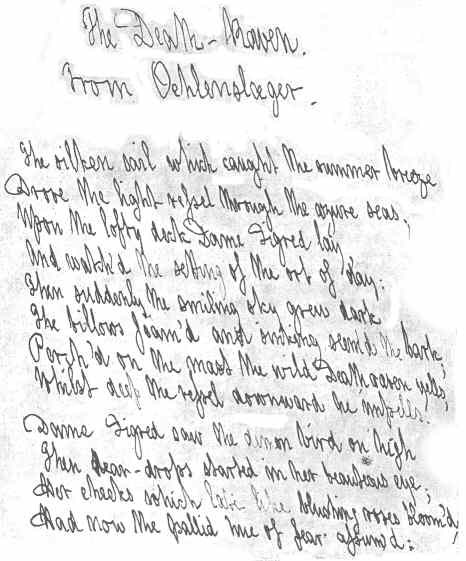 The Death-Raven.
From Oehlenslæger.
The silken sail which caught the summer breeze
Drove the light vessel through the azure seas;
Upon the lofty deck Dame Sigred lay
And watch'd the setting of the orb of day:
Then suddenly the smiling sky grew dark
The billows foam'd and sinking seem'd the bark;
Perch'd on the mast the wild Death raven yells,
Whilst deep the vessel downward he impells!
Dame Sigred saw the demon bird on high
Then tear-drops started in her beauteous eye;
Her cheeks which late like blushing roses bloom'd
Had now the pallid hue of fear assum'd: